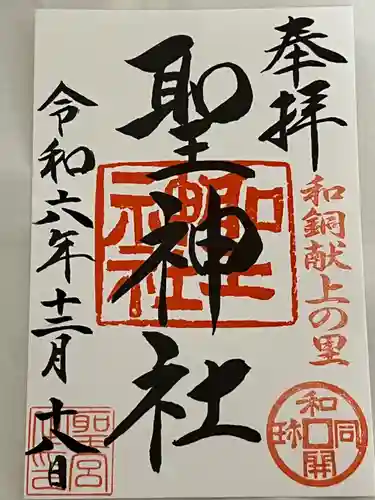 奉拝
和銅献上の里
和同開珎
聖神社
聖神社
令和六年十二月十八日
聖宮